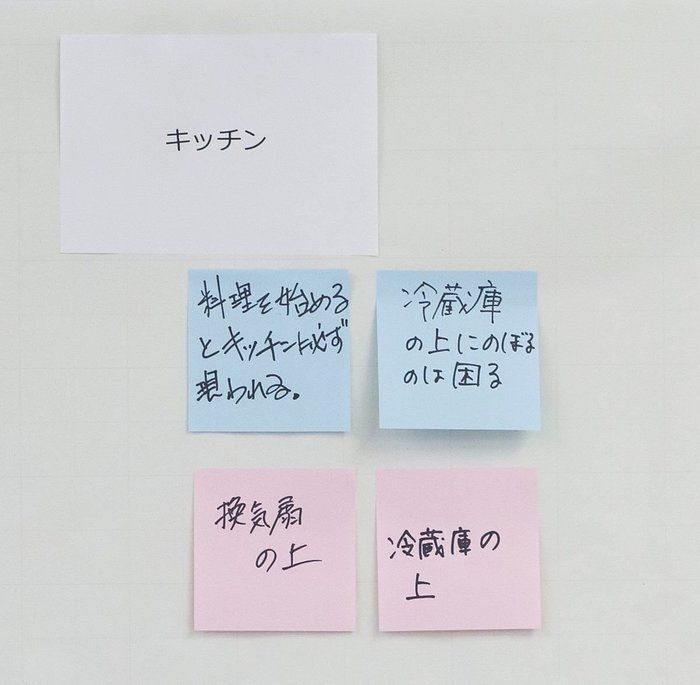 キッチン
料理を始める
とキッチンに必ず
現われる。
冷蔵庫
の上にのぼる
のは困る
換気扇
の上
冷蔵庫の
上